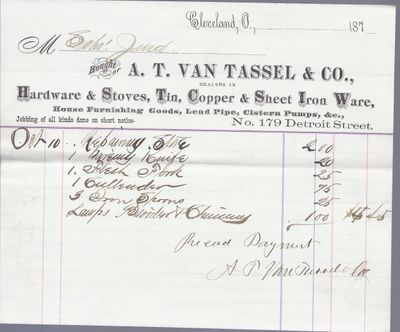 Cleveland, O., 187
M Judd
Bought of
A. T. VAN TASSEL & CO.,
DEALERS IN
Hardware & Stoves, Tin, Copper & Sheet Iron Ware,
House Furnishing Goods, Lead Pipe, Cistern Pumps, &c.,
Jobbing of all kinds done on short notice.
No. 179 Detroit Street.
Oct 10 Repairing Stove 2 00
1 Knife 20
1 Flesh Fork 25
1 Cullender 75
3 Iron Spoons 25
Lamp & Chimney 1 00 4 45
Reced Payment
A T Van Tassel & Co